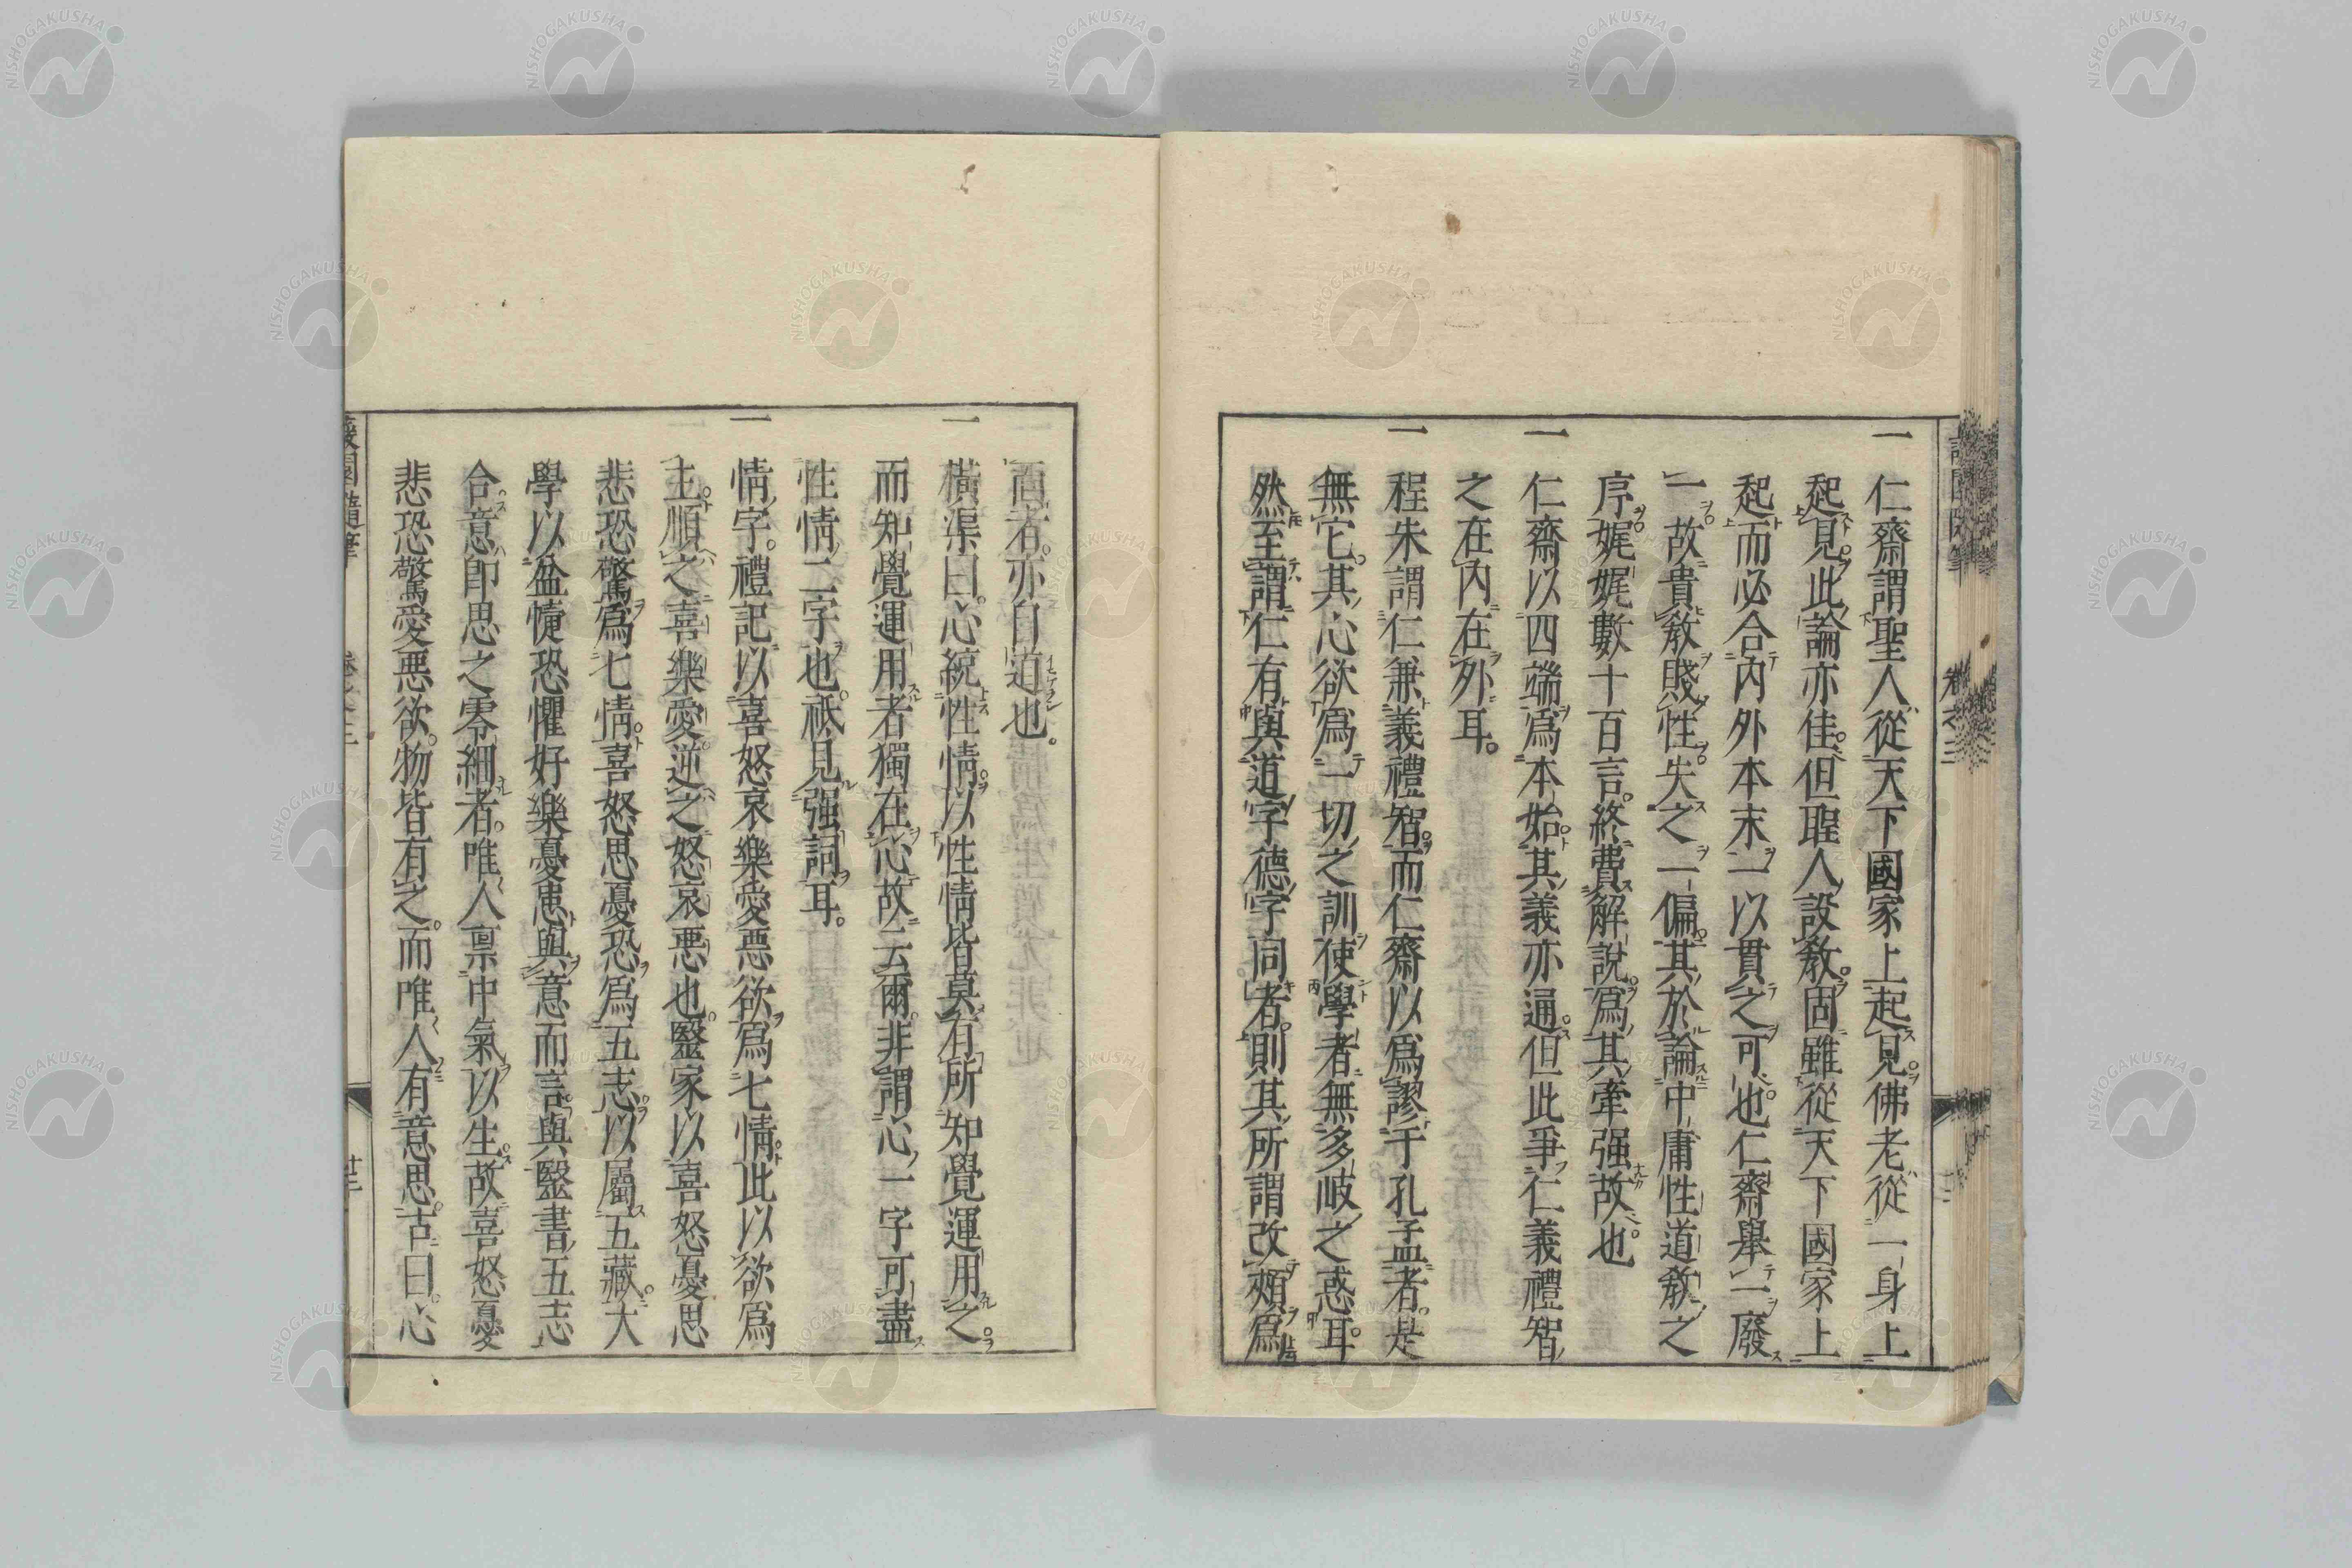 一 仁齋謂聖人從天下國家上起見佛老從一身上
起見此論亦佳但聖人設教固雖從天下國家上
起而必合內外本末一以貫之可也仁齋舉一廢
一故貴教賤性失之一偏其於論中庸性道教之
序娓娓數十百言終費解說爲其牽强故也
一 仁齋以四端爲本始其義亦通但此爭仁義禮智
之在內在外耳
一 程朱謂仁兼義禮智而仁齋以爲謬于孔孟者是
無它其心欲爲一切之訓使學者無多岐之惑耳
然至謂仁有與道字德字同者則其所謂改頰爲
者亦自道也
一 橫渠曰心統性情以性情皆莫有所知覺運用之
而知覺運用者獨在心故云爾非謂心一字可盡
性情二字也祇見强詞耳
一 情字禮記以喜怒哀樂愛惡欲爲七情此以欲爲
主順之喜樂愛逆之怒哀惡也醫家以喜怒憂思
悲恐驚爲七情喜怒思憂恐爲五志以屬五藏大
學以忿懥恐懼好樂憂患與意而言與醫書五志
合意卽思之零細者唯人禀中氣以生故喜怒憂
悲恐驚愛惡欲物皆有之而唯人有意思古曰心
NISHOGAKUSHA